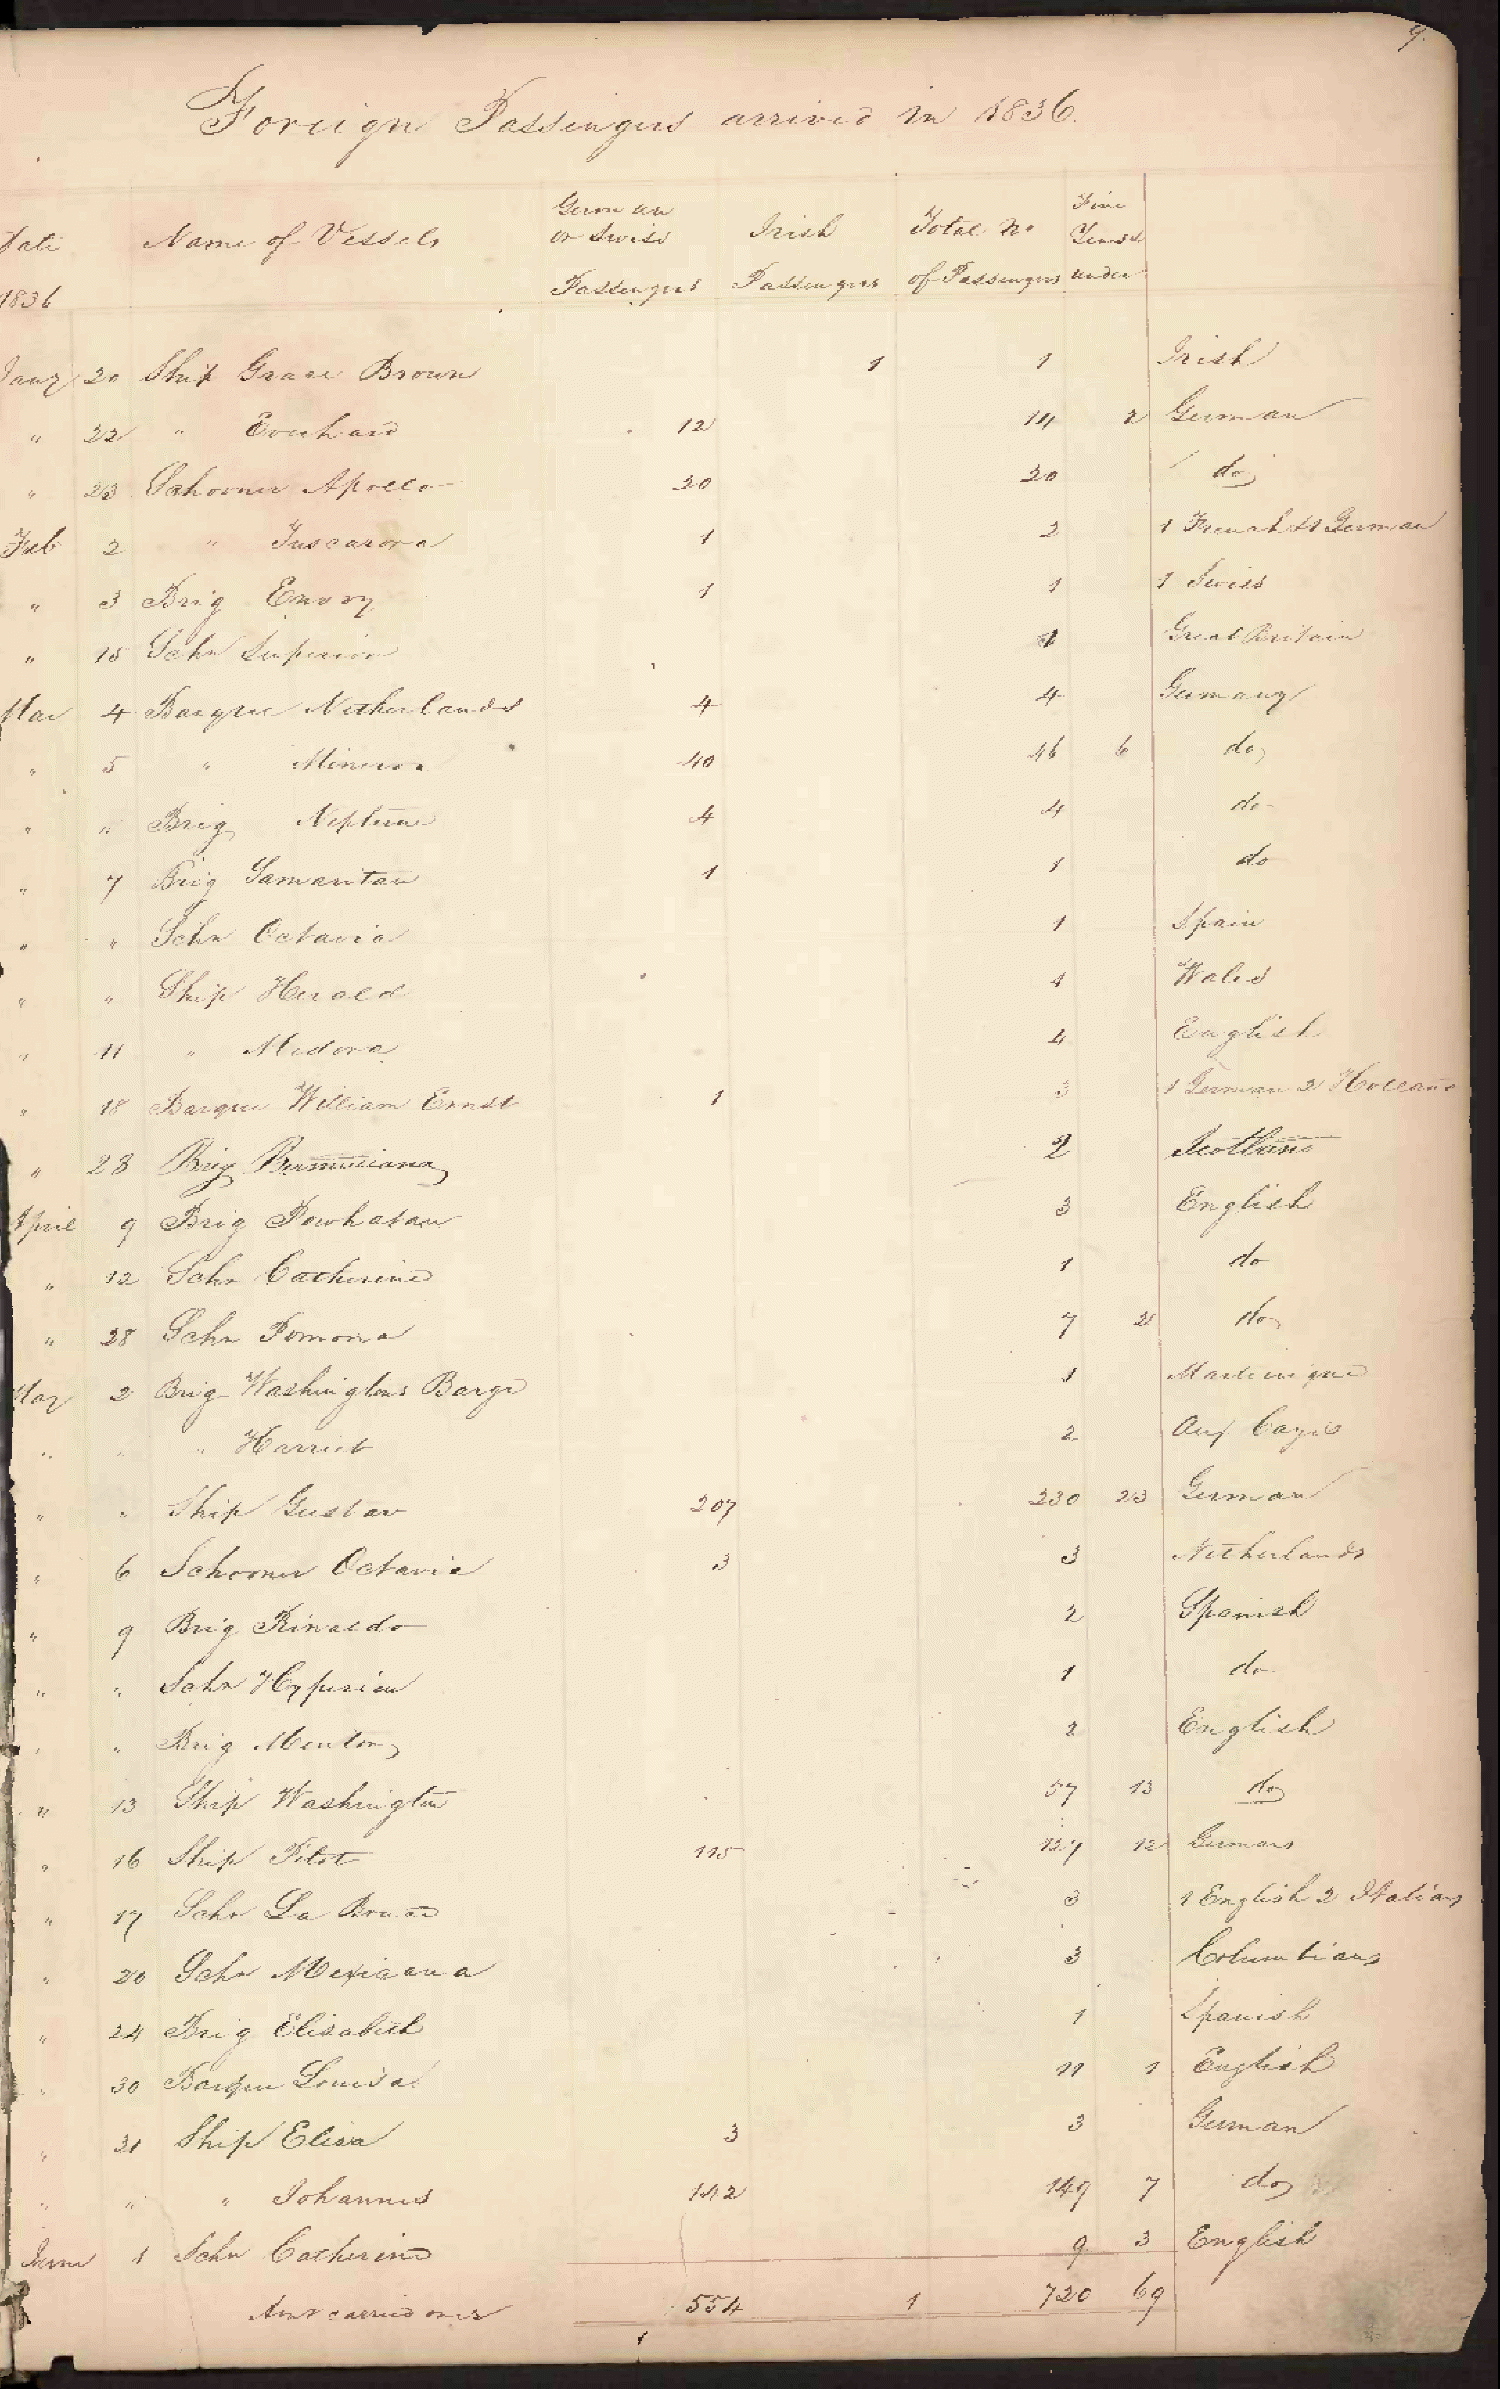 9.
Foreign Passengers arrived in 1836.
Date 1836 Name of Vessels German or Swiss Passengers Irish Passengers Total No of Passengers Five Years & under
Jany 20 Ship Grace Brown 1 1 Irish
" 22 " Everhard 12 14 2 German
" 23 Schooner Apollo 20 20 do
Feb 2 " Tuscarora 1 2 1 French & 1 German
" 3 Brig Envoy 1 1 1 Swiss
" 15 Schr Superior 1 Great Britain
Mar 4 Barque Netherlands 4 4 Germany
" 5 " Minerva 40 46 6 do
" " Brig Neptune 4 4 do
" 7 Brig Samaritan 1 1 do
" " Schr Octavia 1 Spain
" " Ship Herald 1 Wales
" 11 " Medora 4 English
" 18 Barque William Ernst 1 3 1 German 2 Holland
" 28 Brig 2 Scotland
April 9 Brig Powhatan 3 English
" 12 Schr Catherine 1 do
" 28 Schr Pomona 7 2 do
May 2 Brig Washingtons Barge 1 Martinique
" " " Harriet 2 Aux Cayes
" " Ship Gustav 207 230 23 German
" 6 Schooner Octavia 3 3 Netherlands
" 9 Brig Rinaldo 2 Spanish
" " Schr Hyperion 1 do
" " Brig 2 English
" 13 Ship Washington 57 13 do
" 16 Ship Pilot 115 127 12 Germans
" 17 Schr La 3 1 English 2 Italians
" 20 Schr Mexicana 3 Columbians
" 24 Brig Elisabeth 1 Spanish
" 30 Barque Louisa 11 1 English
" 31 Ship Elisa 3 3 German
" " " Johannes 142 149 7 do
June 1 Schr Catherine 9 3 English
Amt carried over 554 1 720 69